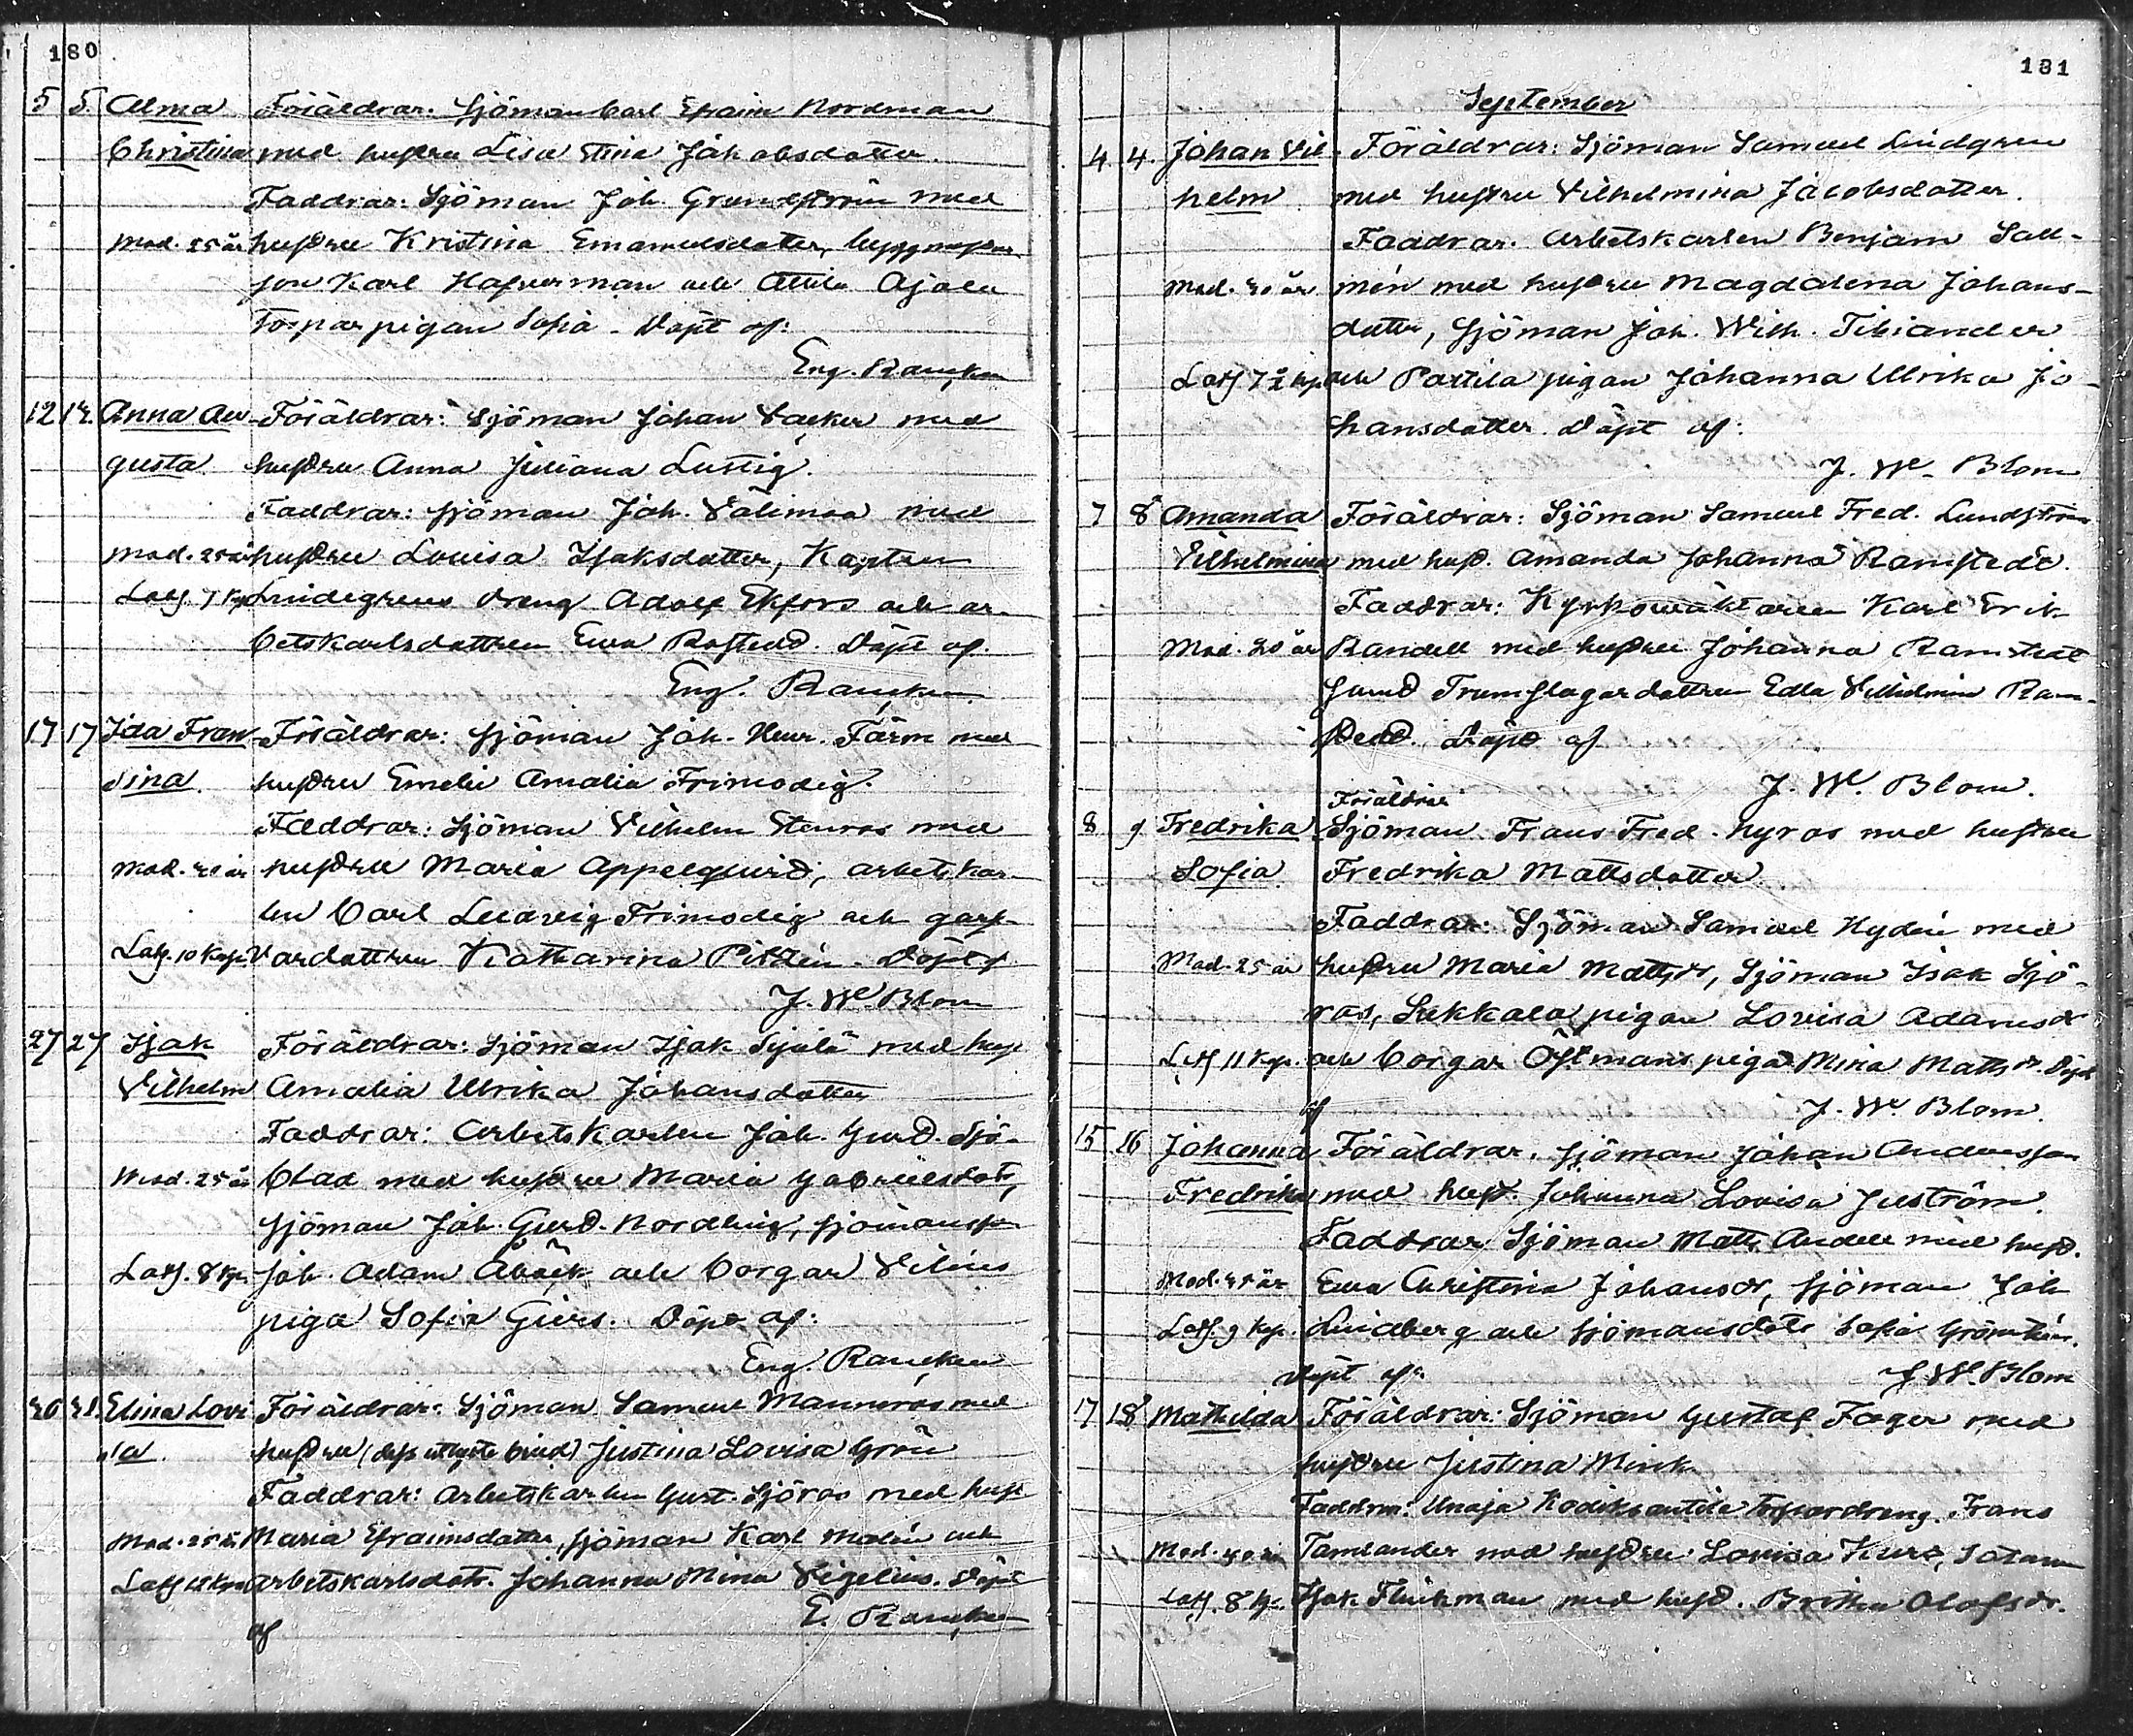 180
5 5. Alma Föräldrar: Sjöman Carl Efraim Nordman
Christina med hustru Lisa Stina Jakobsdotter.
Faddrar: Sjöman Joh. Grundström med
Mod. 25 år hustru Kristina Emanuelsdotter,
son Karl Hafverman och Attila Ajala
torpar pigan Sofia. Döpt af:
Eng. Rancken
12 12. Anna Au- Föräldrar: Sjöman Johan Backer med
gusta hustru Anna Juliana Lustig.
Faddrar: Sjöman Joh. Välimaa med
Mod. 25 år hustru Lovisa Isaksdotter, Kapten
Lots. 7 Kp. Lindegrens dreng Adolf Ekfors och ar-
betskarlsdottren Eva Rostedt. Döpt af.
Eng. Rancken
17 17 Ida Fran- Föräldrar: Sjöman Joh. Henr. Färm med
sina. hustru Emelie Amalia Frimodig.
Faddrar: Sjöman Vilhelm Stenroos med
Mod. år hustru Maria Appelqvist, arbetskar-
len Carl Ludvig Frimodig och garf-
Lots. 10 Kp. vardottren Katharina Pitkän. Döpt af
J. W. Blom
27 27 Isak Föräldrar: Sjöman Isak Sjölä med hust
Vilhelm Amalia Ulrika Johansdotter
Faddrar: Arbetskarlen Joh. Gust. Sjö-
Mod. 25 år blad med hustru Maria Gabrielsdotr,
sjöman Joh. Gust. Nordling, sjömansson
Lots. 8 Kp. Joh. Adam Åbäck och borgar Vilens
piga Sofia Giers. Döpt af:
Eng. Rancken
Elina Lovi- Föräldrar: Sjöman Samuel Mannroos med
sa. hustru Justina Lovisa Grön
Faddrar: Arbetskarlen Gust. Sjöros med hust
Mod. 25 år Maria Efraimsdotter, sjöman Karl Malén och
Lots 12 Kp. arbetskarlsdotr. Johanna Mina Vigelius. Döpt
af E. Rancken
181
September
4 4. Johan Vil- Föräldrar: Sjöman Samuel Lindgren
helm med hustru Vilhelmina Jacobsdotter.
Faddrar. Arbetskarlen Benjam Sall-
Mod. år mén med hustru Magdalena Johans-
dotter, Sjöman Joh. Wilh. Tiliander
Lots 7½ kp. och Pattila pigan Johanna Ulrika Jo-
hansdotter. Döpt af:
J. W. Blom
7 8 Amanda Föräldrar: Sjöman Samuel Fred. Lundström
Vilhelmina med hust. Amanda Johanna Ramstedt.
Faddrar: Kyrkowäktaren Karl Erik
Mod. 20 år Randell med hustru Johanna Ramstedt
samt Trumslagardottren Edla Vilhelmina Ram-
stedt. Döpt af
J. W. Blom.
Föräldrar
8 9 Fredrika Sjöman Frans Fred. Nyroos med hustru
Sofia. Fredrika Mattsdotter
Faddrar: Sjöman Samuel Nydén med
Mod. 25 år hustru Maria Mattsdr, Sjöman Isak Sjö-
roos, Sukkala pigan Lovisa Adamsdr
Lots 11 Kp. och borgar Östmans piga Mina Mattsdr. Döpt
af J. W. Blom.
15 16 Johanna Föräldrar. Sjöman Johan Andersson
Fredrika med hust. Johanna Lovisa Juström.
Faddrar: Sjöman Matts Andell med hust.
Mod. år Eva Christina Johansdr, sjöman Joh
Lots. 9 Kp. Lindberg och sjömansdotr Sofia
Döpt af: J. W. Blom
17 18 Mathilda Föräldrar: Sjöman Gustaf Fager med
hustru Justina Minck
Faddrar: Unaja torpardreng. Frans
Mod. år Tamlander med hustru Lovisa Kurs,
Lots. 8 kp. Isak Flinkman med hust. Britha Olofsdr.